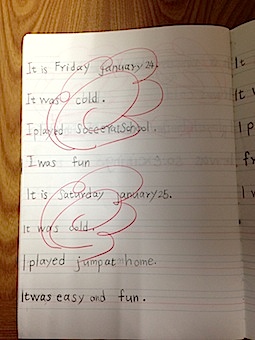 It is Friday january 24.
It was cold.
I played Soccer at School.
I was fun
It is Saturday january 25.
It was cold.
I played jump at home.
It was easy and fun.
It
It w
I p
fr
I w